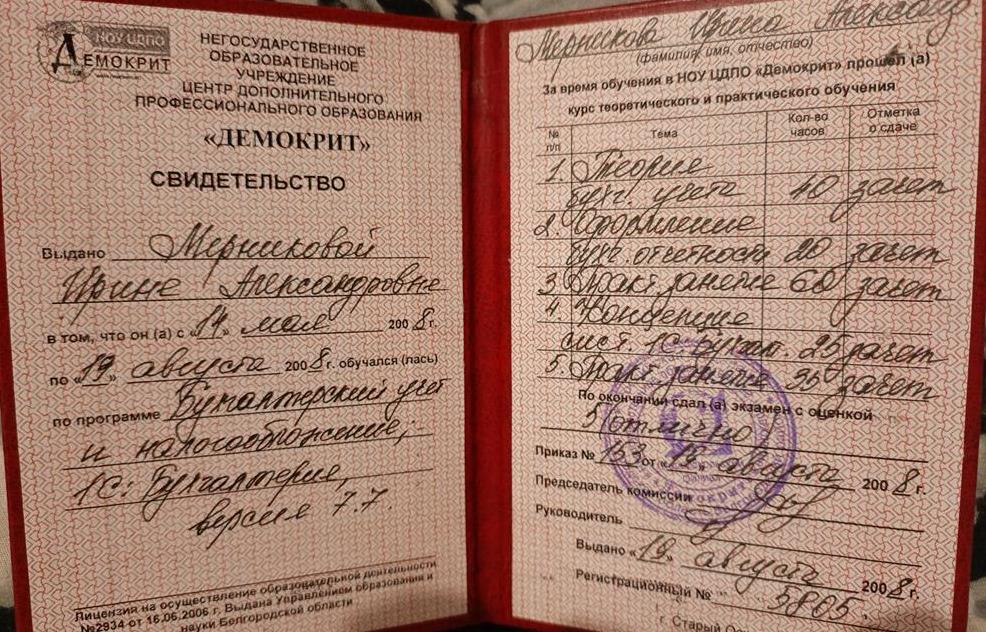 НОУ ЦДПО
ДЕМОКРИТ
НЕГОСУДАРСТВЕННОЕ
ОБРАЗОВАТЕЛЬНОЕ
УЧРЕЖДЕНИЕ
ЦЕНТР ДОПОЛНИТЕЛЬНОГО
ПРОФЕССИОНАЛЬНОГО ОБРАЗОВАНИЯ
«ДЕМОКРИТ»
СВИДЕТЕЛЬСТВО
Выдано Мерниковой
Ирине Александровне
в том, что он (а) с «14» мая 2008 г.
по «19» августа 2008 г. обучался (лась)
по программе Бухгалтерский учёт
и налогообложение;
1С: Бухгалтерия,
версия 7.7.
Лицензия на осуществление образовательной деятельности
№2934 от 16.06.2006 г. Выдана Управлением образования и
науки Белгородской области
Мерникова Ирина Александ
(фамилия, имя, отчество)
За время обучения в НОУ ЦДПО «Демокрит» прошёл (а)
курс теоретического и практического обучения
№ п/п Тема Кол-во часов Отметка о сдаче
1. Теория
бухг. учета 40 зачет
2. Оформление
бухг. отчетности 20 зачет
3. Практ. занятие 60 зачет
4. Концепция
сист. 1С: Бухгал. 25 зачет
5. Практ. занятие 35 зачет
По окончании сдал (а) экзамен с оценкой
5 (отлично)
Приказ № 153 от «19» августа 2008 г.
Председатель комиссии
Руководитель
Выдано «19» августа 2008 г.
Регистрационный № 5865
г. Старый Ос